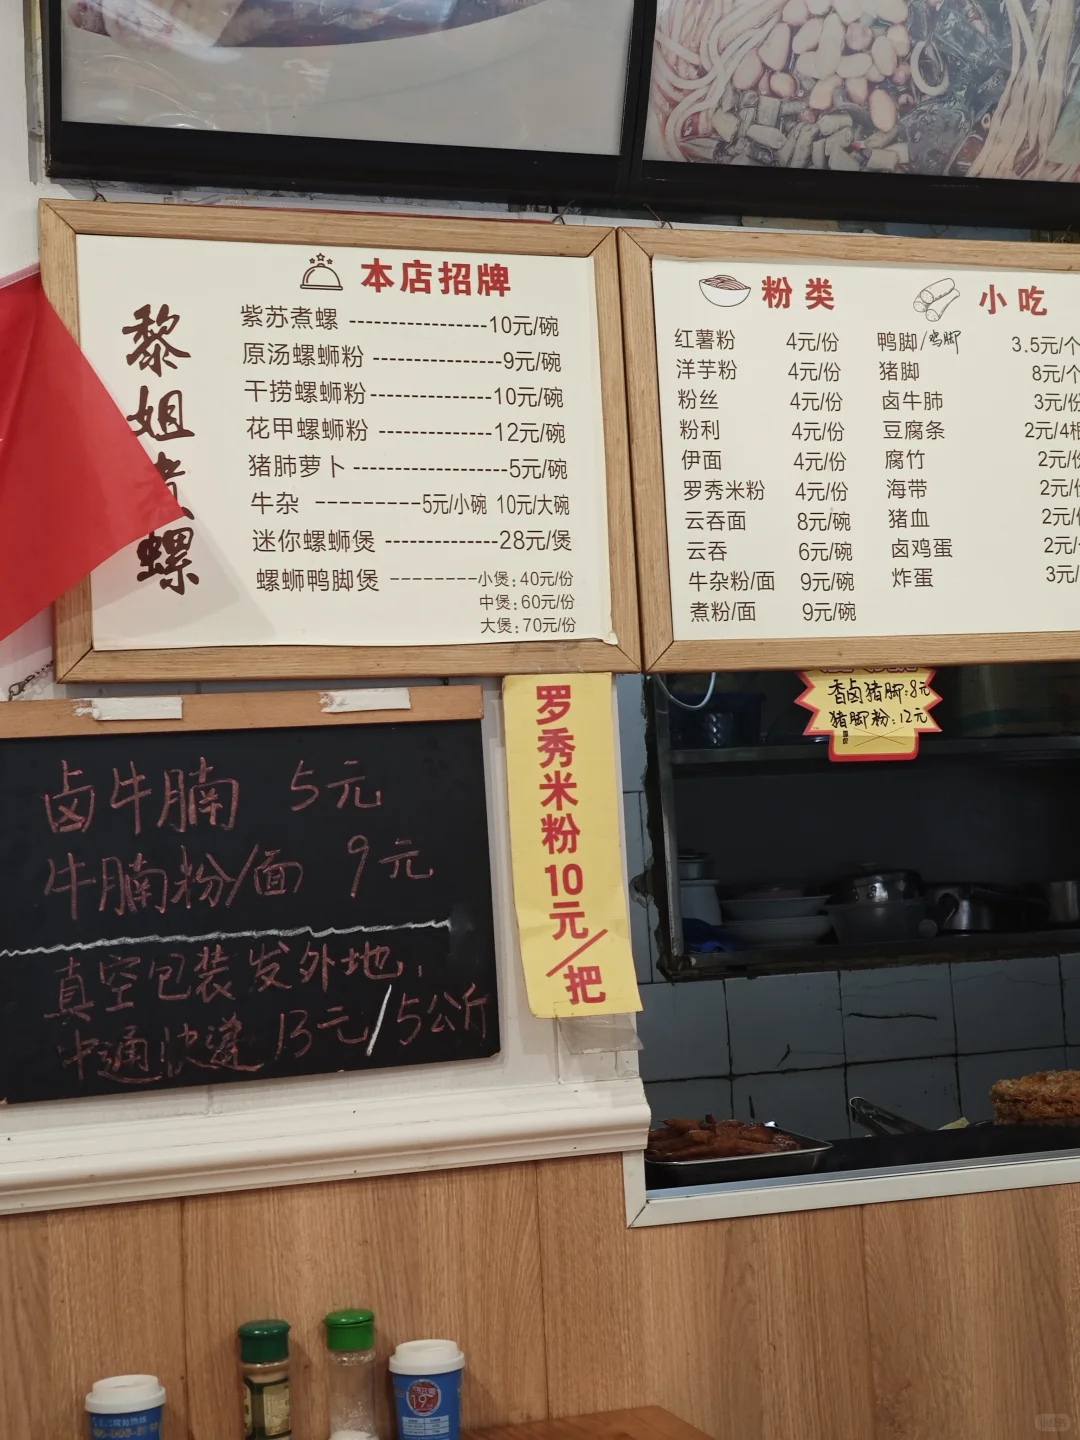 黎姐煮螺
本店招牌
紫苏煮螺 -----------------10元/碗
原汤螺蛳粉 ----------------9元/碗
干捞螺蛳粉---------------10元/碗
花甲螺蛳粉 --------------12元/碗
猪肺萝卜-------------------5元/碗
牛杂 -------------5元/小碗 10元/大碗
迷你螺蛳煲 --------------28元/煲
螺蛳鸭脚煲 ---------小煲:40元/份
中煲:60元/份
大煲:70元/份
粉类
红薯粉 4元/份
洋芋粉 4元/份
粉丝 4元/份
粉利 4元/份
伊面 4元/份
罗秀米粉 4元/份
云吞面 8元/碗
云吞 6元/碗
牛杂粉/面 9元/碗
煮粉/面 9元/碗
小吃
鸭脚/鸡脚 3.5元/个
猪脚 8元/个
卤牛肺 3元/份
豆腐条 2元/4根
腐竹 2元/份
海带 2元/份
猪血 2元/
卤鸡蛋 2元/
炸蛋 3元/
香卤猪脚:8元
猪脚粉:12元
卤牛腩 5元
牛腩粉/面 9元
真空包装发外地,
中通快递13元/5公斤
罗秀米粉10元/把